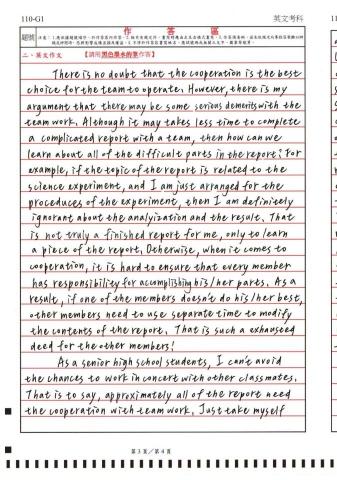 110-G1
英文考科
作答區
二、英文作文 【請用黑色墨水的筆作答】
There is no doubt that the cooperation is the best
choice for the team to operate. However, there is my
argument that there may be some serious demerits with the
team work. Although it may takes less time to complete
a complicated report with a team, then how can we
learn about all of the difficult parts in the report? For
example, if the topic of the report is related to the
science experiment, and I am just arranged for the
procedures of the experiment, then I am definitely
ignorant about the analyization and the result. That
is not truly a finished report for me, only to learn
a piece of the report. Otherwise, when it comes to
cooperation, it is hard to ensure that every member
has responsibility for accomplishing his/her parts. As a
result, if one of the members doesn't do his/her best,
other members need to use separate time to modify
the contents of the report. That is such a exhausted
deed for the other members!
As a senior high school students, I can't avoid
the chances to work in concert with other classmates.
That is to say, approximately all of the report need
the cooperation with team work. Just take myself
第3頁／第4頁